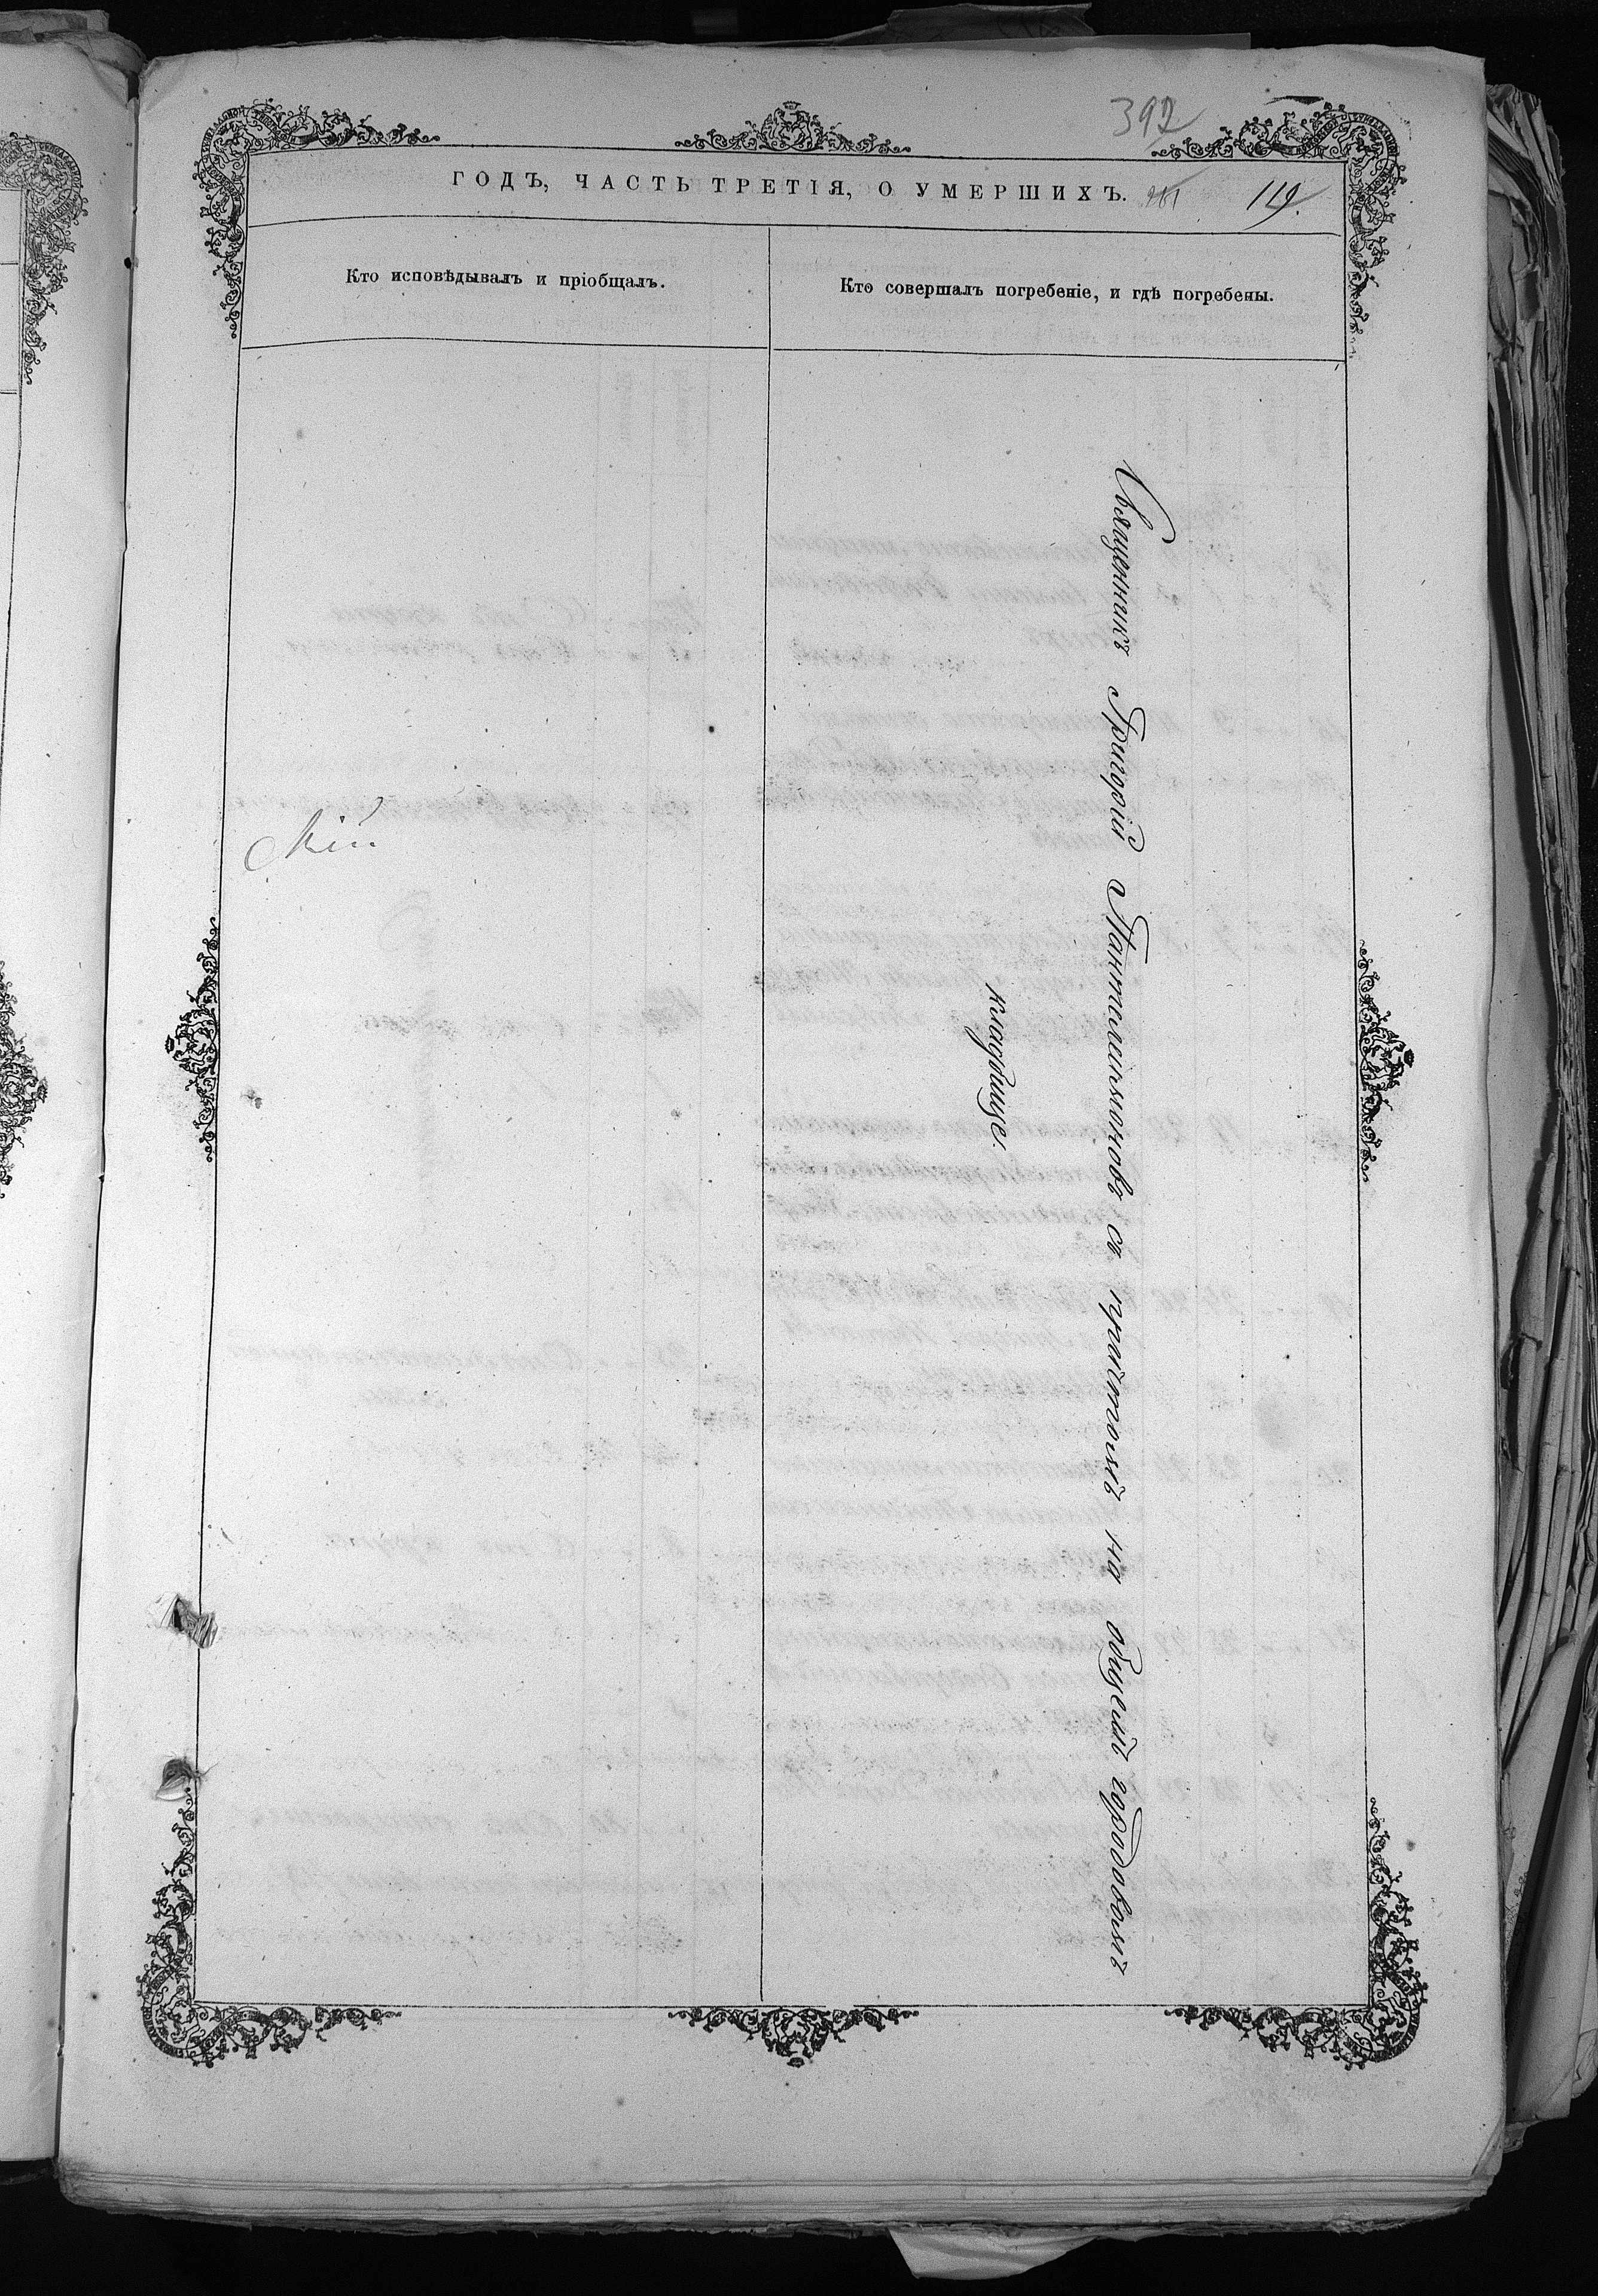 392
ГОДЪ, ЧАСТЬ ТРЕТІЯ, О УМЕРШИХЪ.
119.
Кто исповѣдывалъ и пріобщалъ.
Кто совершалъ погребеніе, и гдѣ погребены.
Священникъ Григорій Пантилимоновъ съ причтомъ на общемъ городовомъ
кладбище.